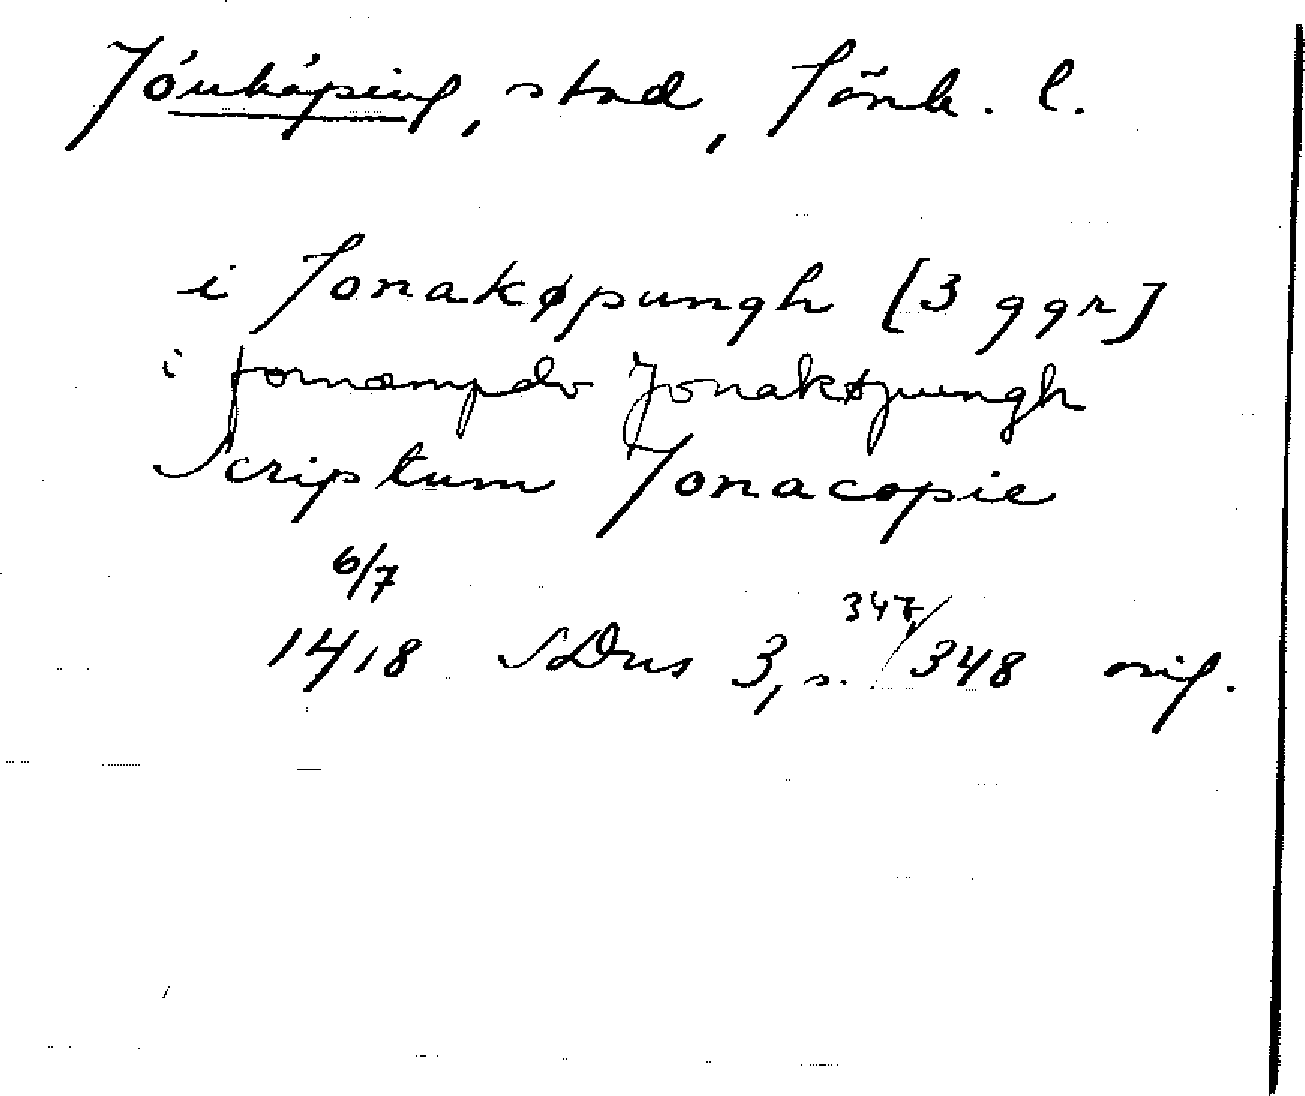 Jönköping, stad, Jönk. l.
i Jonakøpungh [3 ggr]
i fornæmpdo Jonakøpungh
Scriptum Jonacopie
6/7
1418 SDns 3, s. 347/348 orig.